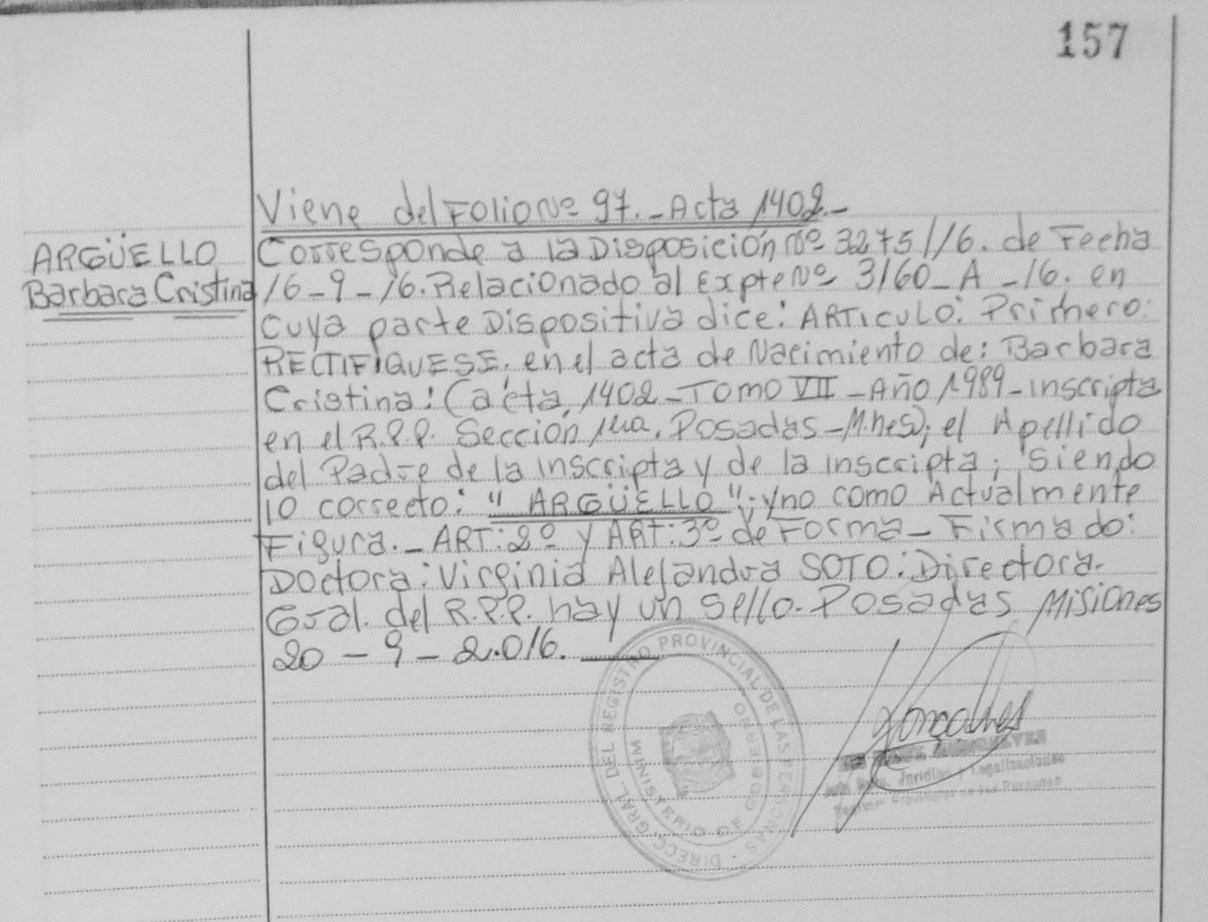 157
ARGÜELLO
Barbara Cristina
Viene del Folio Nº 97._Acta 1402._
Corresponde a la Disposición Nº 3275/16. de Fecha
16-9-16. Relacionado al Expte Nº 3160_A_16. en
cuya parte Dispositiva dice: ARTICULO: Primero:
RECTIFIQUESE. en el acta de Nacimiento de: Barbara
Cristina: (acta, 1402_Tomo VII_Año 1989_inscripta
en el R.P.P. Sección 1era, Posadas-M.nes); el Apellido
del Padre de la inscripta y de la inscripta; siendo
lo correcto: "ARGÜELLO"; y no como Actualmente
Figura._ART:2º y ART:3º de Forma_Firmado:
Doctora: Virginia Alejandra SOTO: Directora.
Gral. del R.P.P. hay un sello. Posadas Misiones
20-9-2.016.
DIRECC. GRAL. DEL REGISTRO PROVINCIAL DE LAS PERSONAS -
MINISTERIO DE GOBIERNO
Jurídica y Legalizaciones
Provincial de las Personas